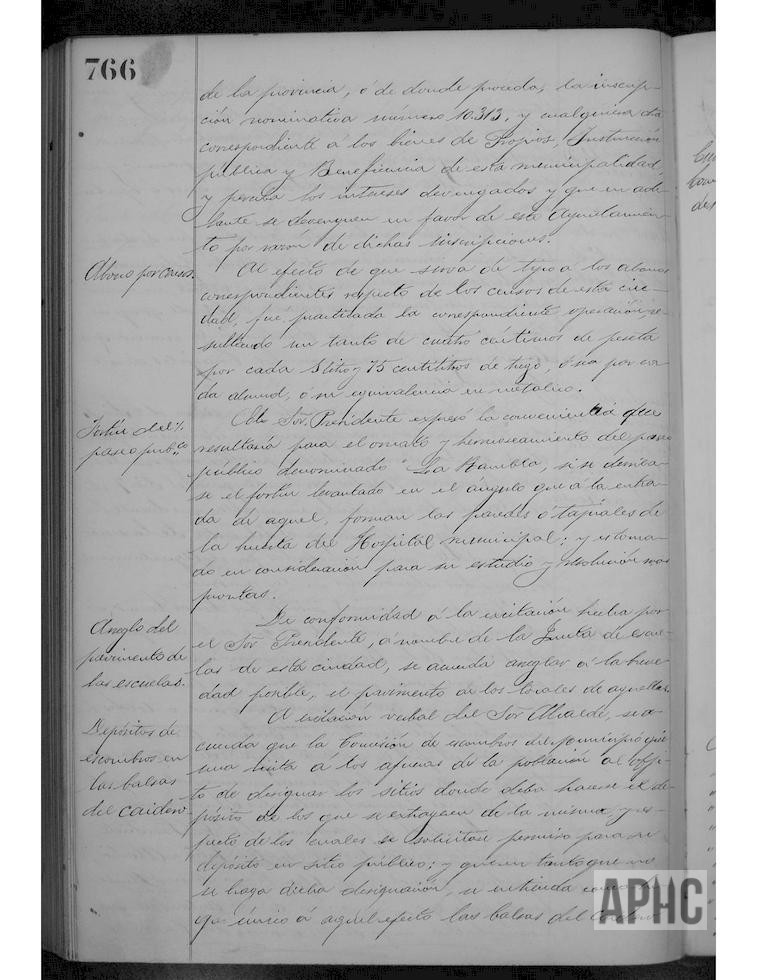 766
de la provincia, ó de donde proceda, la inscrip-
ción nominativa número 10.313, y cualquiera otra
correspondiente á los bienes de Propios, Instrucción
pública y Beneficencia de esta municipalidad,
y perciba los intereses devengados y que en ade-
lante se devenguen en favor de este Ayuntamien-
to por razon de dichas inscripciones.
Abono por censos.
Al efecto de que sirva de tipo á los abonos
correspondientes respecto de los censos de esta ciu-
dad, fué practicada la correspondiente operación re-
sultando un tanto de cuatro céntimos de peseta
por cada 1 litro y 75 centilitros de trigo, ó sea por ca-
da almud, ó su equivalencia en metálico.
Fortín del
paseo púb.co
Sor. Presidente expresó la conveniencia que
resultaría para el ornato y hermoseamiento del paseo
público denominado "La Rambla, si se derriba-
se el fortín levantado en el ángulo que á la entra-
da de aquel, forman las paredes ó tapiales de
la huerta del Hospital municipal; y es toma-
do en consideración para su estudio y resolución mas
prontas.
Arreglo del
pavimento de
las escuelas.
De conformidad á la excitación hecha por
el Sor Presidente, á nombre de la Junta de escue-
las de esta ciudad, se acuerda arreglar á la breve-
dad posible, el pavimento de los locales de aquellas.
Depósitos de
escombros en
las balsas
del Caidero
A excitación verbal del Sor Alcalde, se a-
cuerda que la Comisión de escombros del municipio gire
una visita á los afueras de la población al obje-
to de designar los sitios donde deba hacerse el de-
pósito de los que se extraygan de la misma, y res-
pecto de los cuales se solicitase permiso para su
depósito en sitio público; y que en tanto que no
se haga dicha designación, se entienda como
único á aquel efecto las balsas del Caidero
APHC